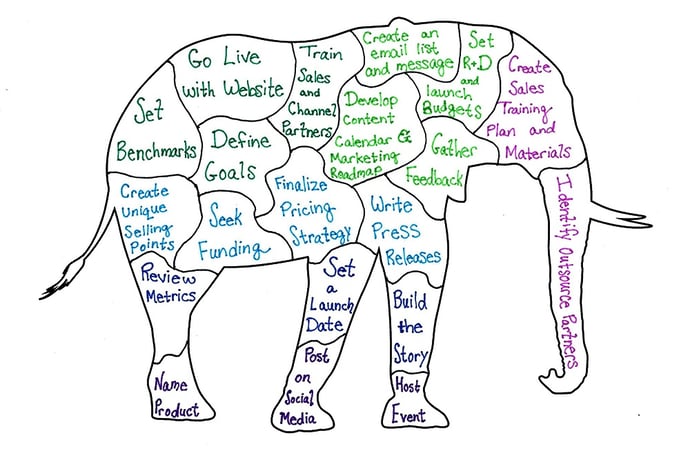 Go Live
with Website
Train
Sales
and
Channel
Partners
Create an
email list
and message
Set
R+D
and
launch
Budgets
Create
Sales
Training
Plan and
Materials
Set
Benchmarks
Define
Goals
Develop
Content
Calendar &
Marketing
Roadmap
Gather
Feedback
Identify Outsource Partners
Create
Unique
Selling
Points
Seek
Funding
Finalize
Pricing
Strategy
Write
Press
Releases
Review
Metrics
Set
a
Launch
Date
Build
the
Story
Name
Product
Post
on
Social
Media
Host
Event